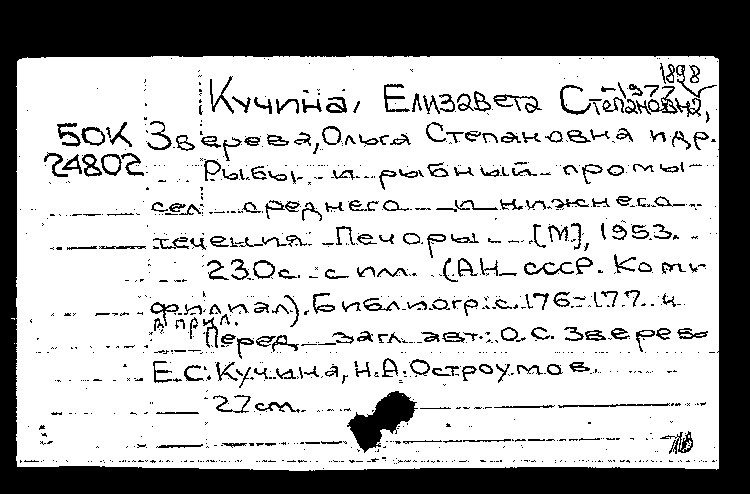 1898
-1977
Кучина, Елизавета Степановна,
БОК Зверева, Ольга Степановна и др.
24802 Рыбы и рыбный промы-
сел среднего и нижнего
течения Печоры. [М], 1953.
230с. с илл. (АН СССР. Коми
филиал). Библиогр: с. 176-177 и
в прил.
Перед загл. авт.: О.С. Зверева
Е.С. Кучина, Н.А. Остроумов
27см.